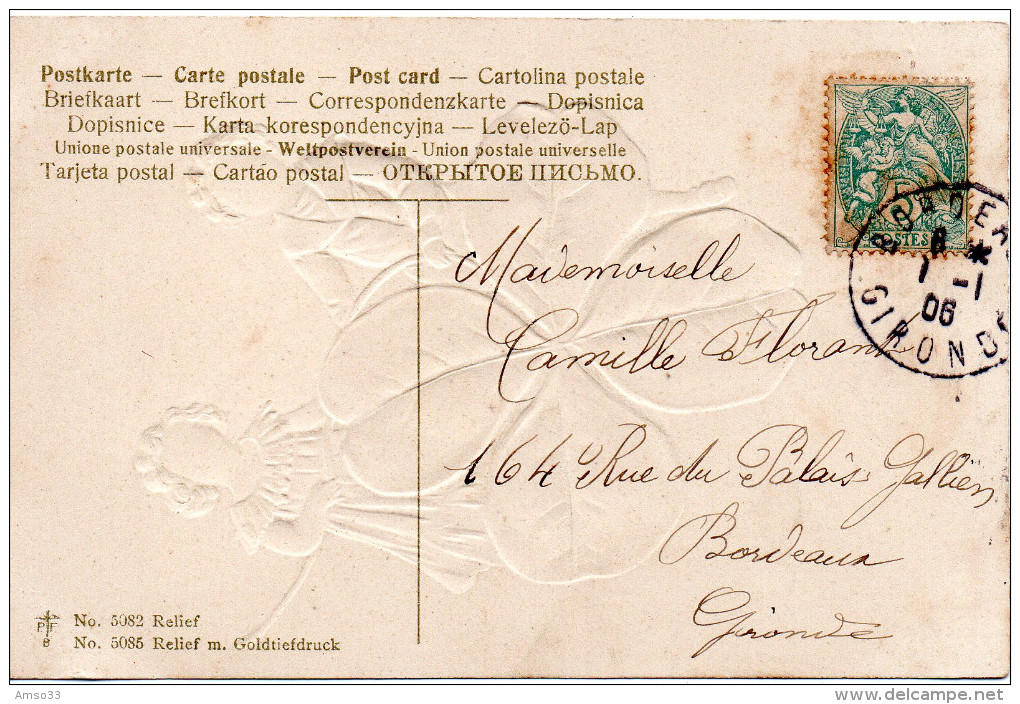 Postkarte — Carte postale — Post card — Cartolina postale
Briefkaart — Brefkort — Correspondenzkarte — Dopisnica
Dopisnice — Karta korespondencyjna — Levelezö-Lap
Unione postale universale - Weltpostverein - Union postale universelle
Tarjeta postal — Cartáo postal — ОТКРЫТОЕ ПИСЬМО.
5
POSTES
BORDEA
8 *
1 -1
06
GIRONDE
Mademoiselle
Camille Florant
164 Rue du Palais Gallien
Bordeaux
Gironde
PF
B
No. 5082 Relief
No. 5085 Relief m. Goldtiefdruck
Amso33
delcampe.net